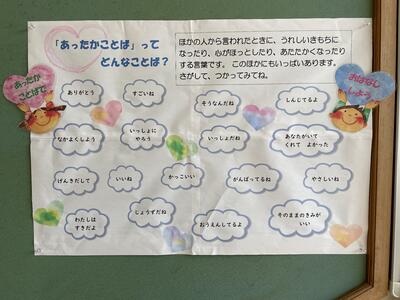 「あったかことば」って
どんなことば？
ほかの人から言われたときに、うれしいきもちに
なったり、心がほっとしたり、あたたかくなったり
する言葉です。このほかにもいっぱいあります。
さがして、つかってみてね。
あったか
ことばで
おはなし
しよう
ありがとう
すごいね
そうなんだね
しんじてるよ
なかよくしよう
いっしょに
やろう
いっしょだね
あなたがいて
くれて よかった
げんきだして
いいね
かっこいい
がんばってるね
やさしいね
わたしは
すきだよ
じょうずだね
おうえんしてるよ
そのままのきみが
いい